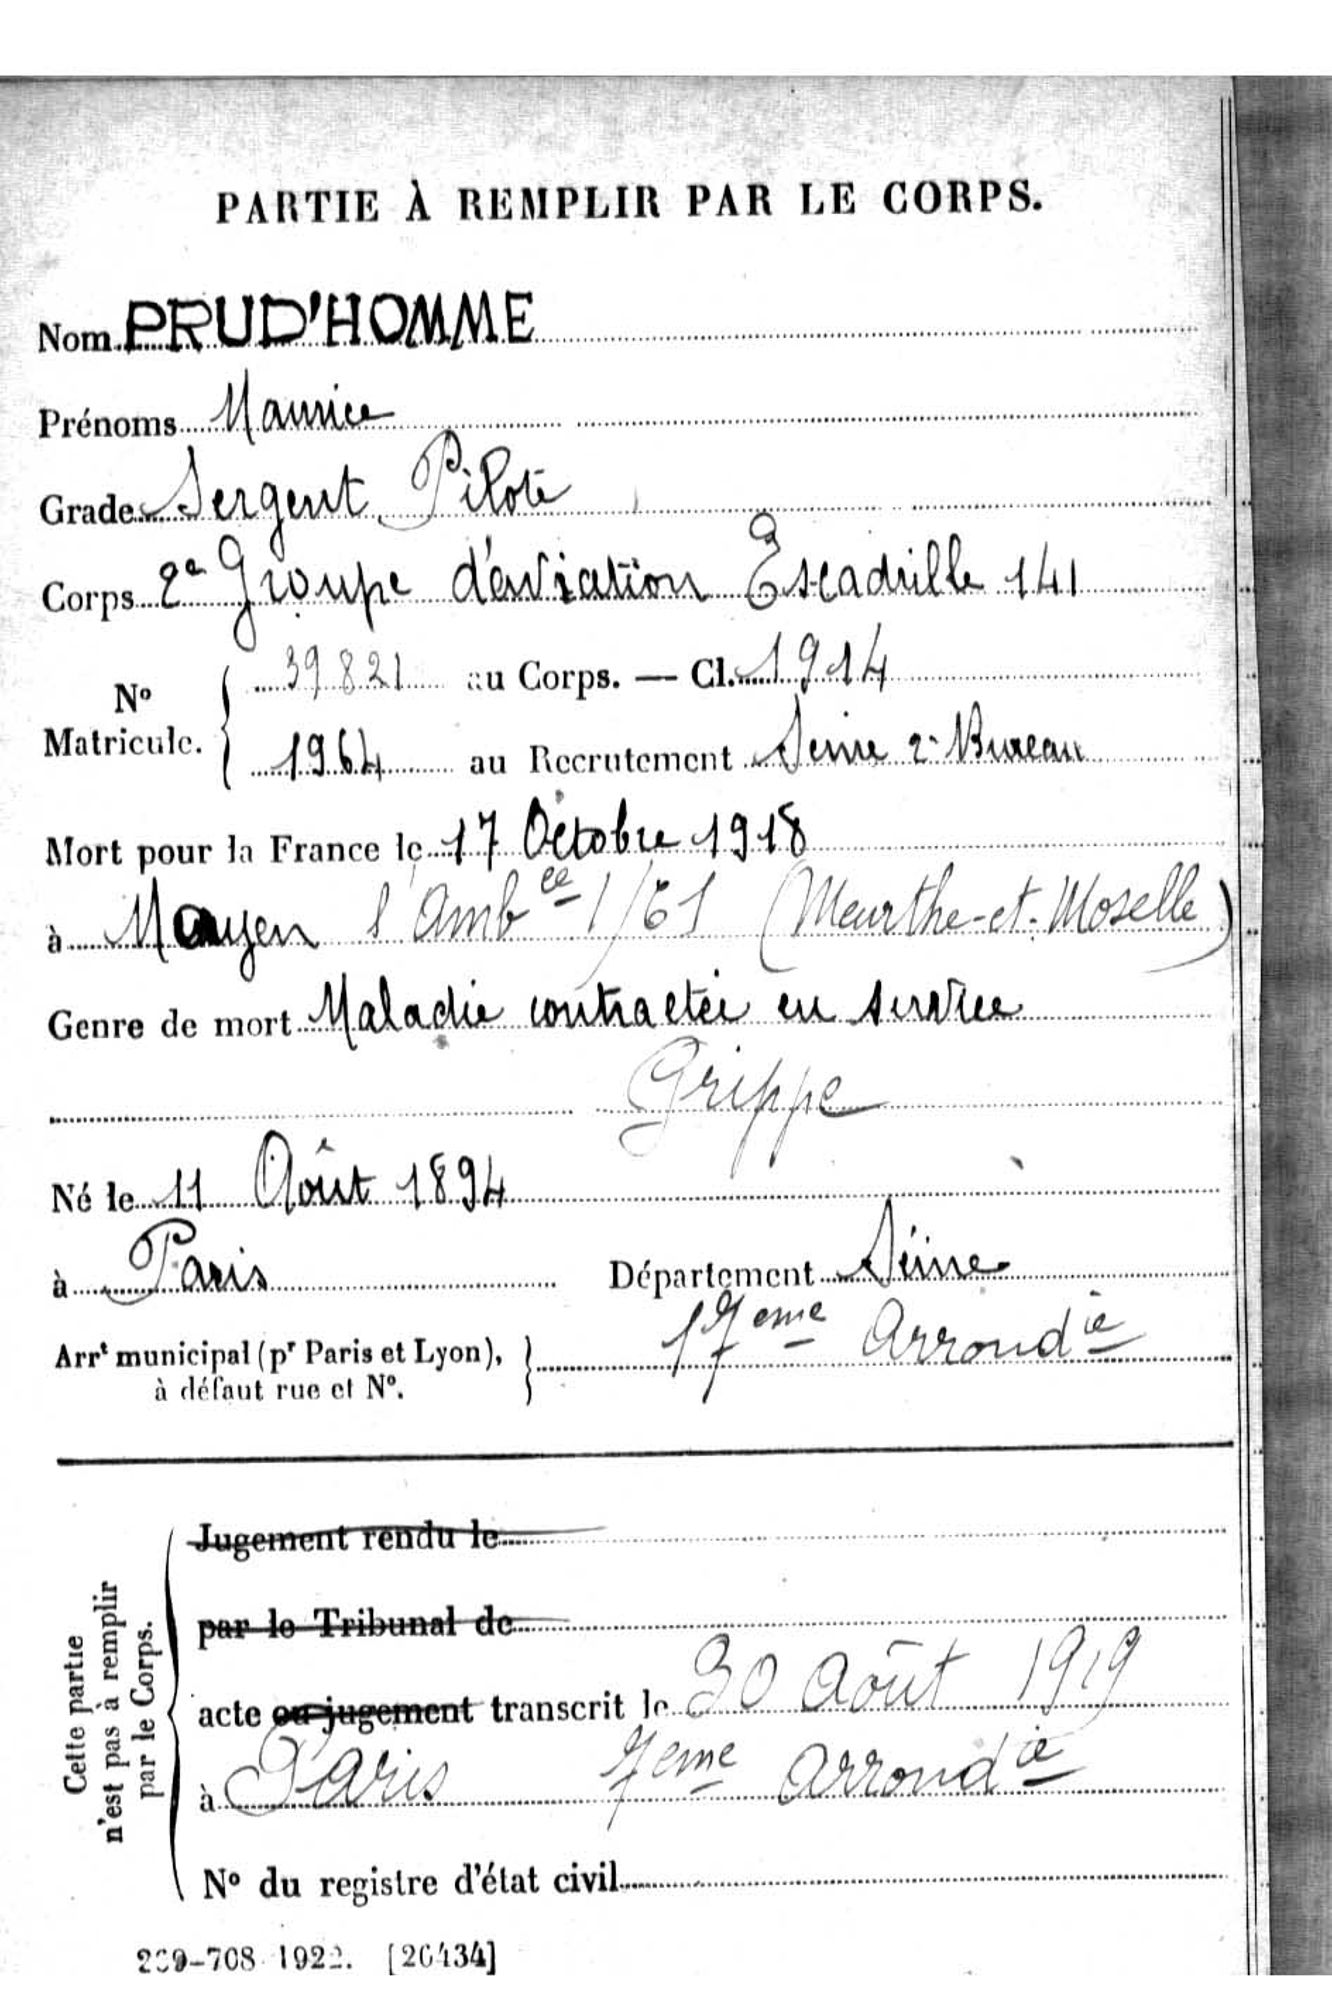 PARTIE À REMPLIR PAR LE CORPS.
Nom PRUD'HOMME
Prénoms Maurice
Grade Sergent Pilote
Corps 2e Groupe d'aviation Escadrille 141
N° Matricule. { 39821 au Corps. — Cl. 1914
1964 au Recrutement Seine 2e Bureau
Mort pour la France le 17 Octobre 1918
à Moyen l'Ambce 1/61 (Meurthe-et-Moselle)
Genre de mort Maladie contractée en service
Grippe
Né le 11 Août 1894
à Paris Département Seine
Arrt municipal (pr Paris et Lyon), à défaut rue et N°. } 17eme Arrondie
Cette partie n'est pas à remplir par le Corps.
Jugement rendu le
par le Tribunal de
acte ou jugement transcrit le 30 Août 1919
à Paris 7eme Arrondie
N° du registre d'état civil
269-708 1922. [26434]